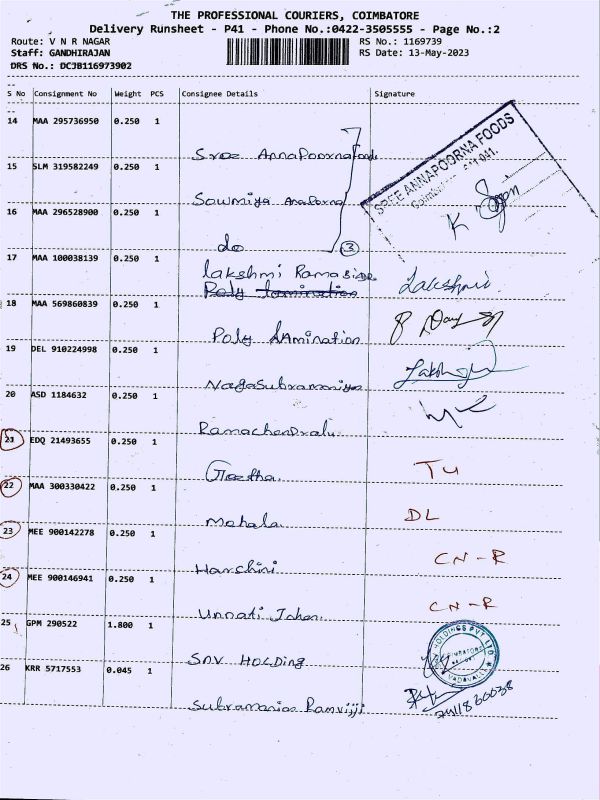 THE PROFESSIONAL COURIERS, COIMBATORE
Delivery Runsheet - P41 - Phone No.:0422-3505555 - Page No.:2
Route: V N R NAGAR RS No.: 1169739
Staff: GANDHIRAJAN RS Date: 13-May-2023
DRS No.: DCJB116973902
S No Consignment No Weight PCS Consignee Details Signature
14 MAA 295736950 0.250 1
Sree AnnaPoorna Foods
SREE ANNAPOORNA FOODS
15 SLM 319582249 0.250 1
Sowmiya AnaPoorna
16 MAA 296528900 0.250 1
do 3
17 MAA 100038139 0.250 1
lakshmi Rama
Poly lamination
Lakshmi
18 MAA 569860839 0.250 1
Poly LAmination
19 DEL 910224998 0.250 1
NagaSubramaniya
20 ASD 1184632 0.250 1
Ramachendralu
21 EDQ 21493655 0.250 1
Geetha TU
22 MAA 300330422 0.250 1
Mahala DL
23 MEE 900142278 0.250 1
Harshini CN-R
24 MEE 900146941 0.250 1
Unnati CN-R
25 GPM 290522 1.800 1
SNV HOLDING
HOLDINGS PVT LTD
26 KRR 5717553 0.045 1
Subramanian Ramvijji